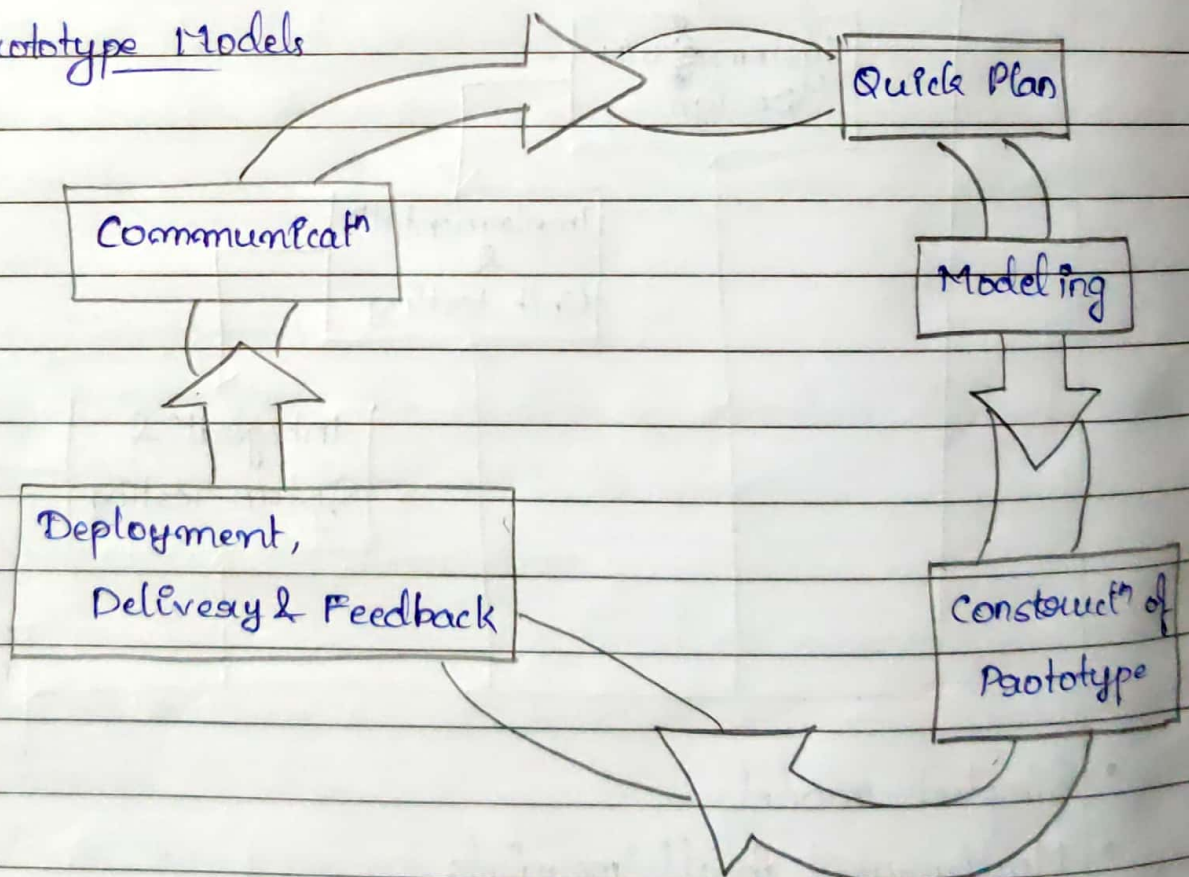 rototype Models
Quick Plan
Communicatⁿ
Modeling
Deployment,
Delivery & Feedback
Constructⁿ of
Prototype